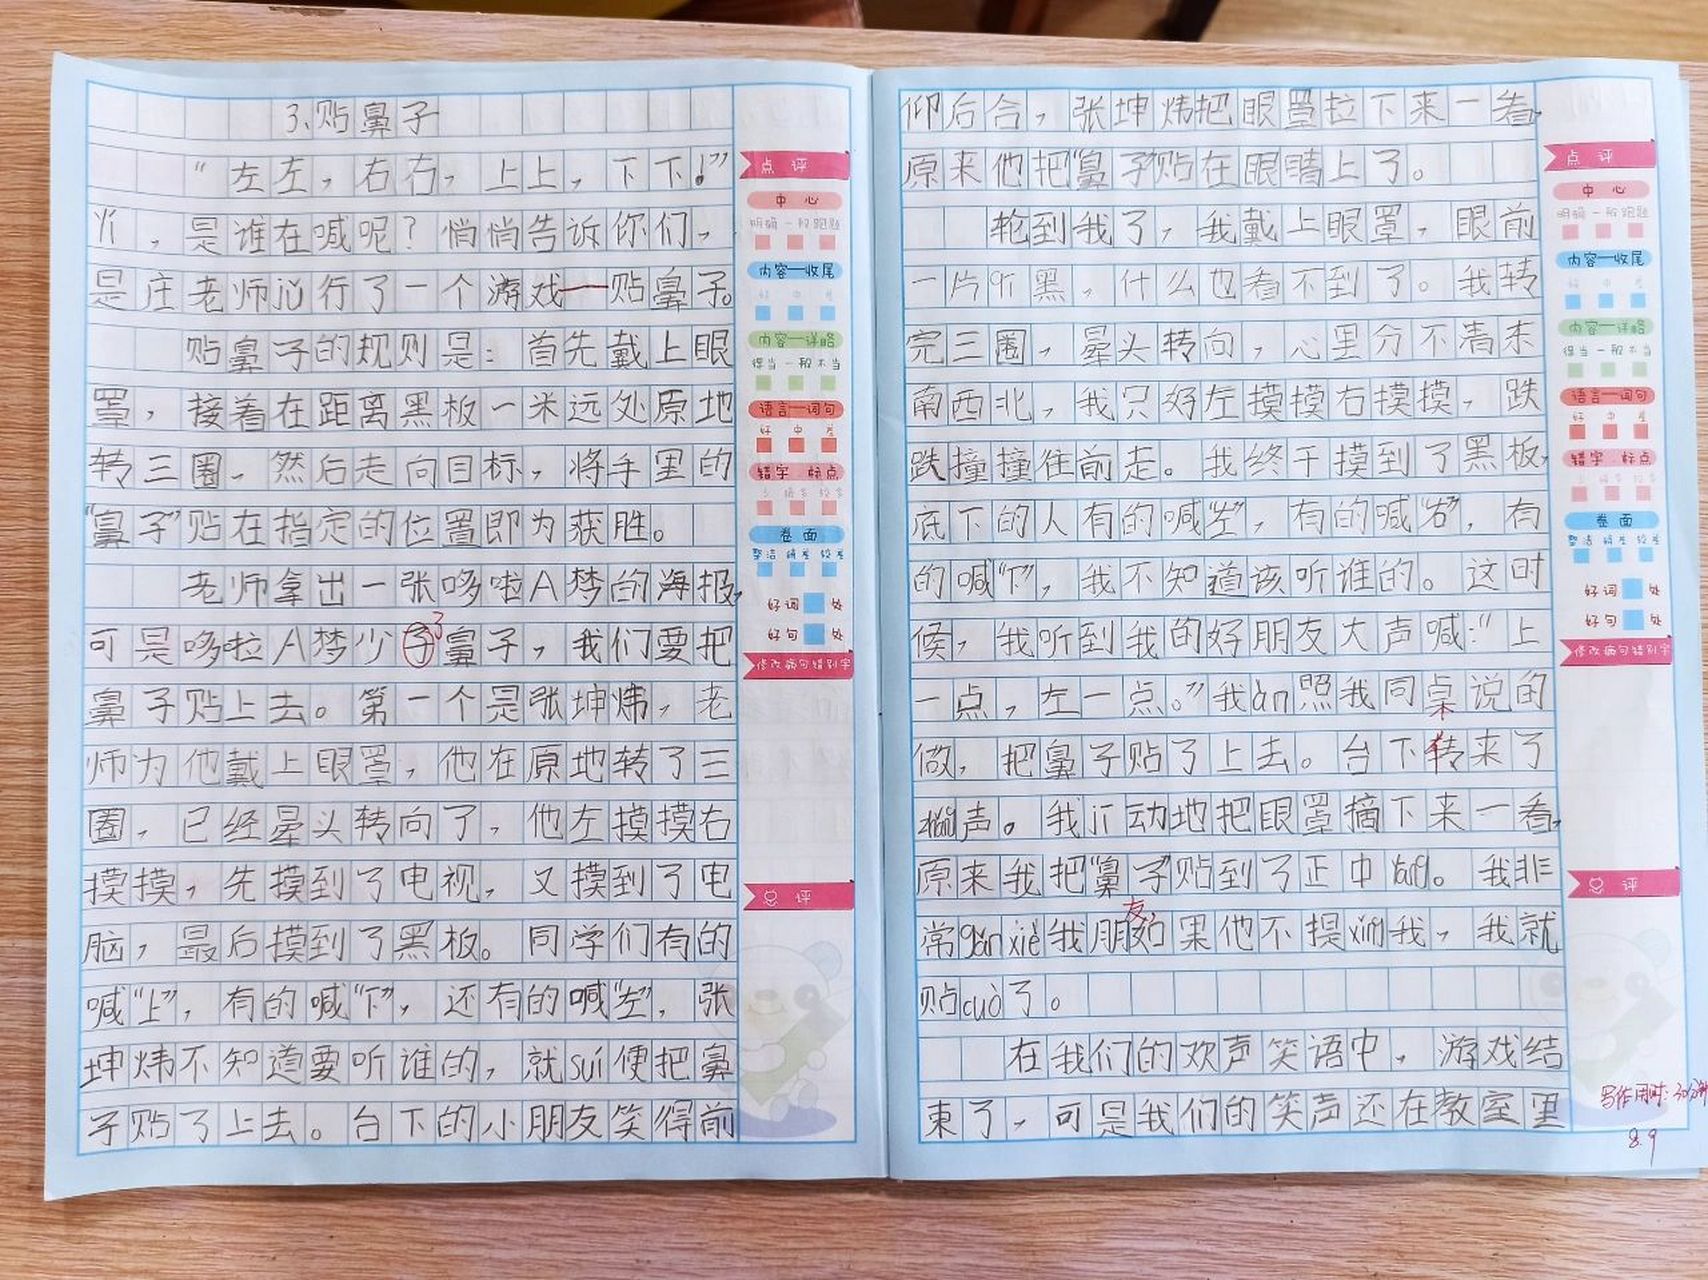 3、贴鼻子
“左左，右右，上上，下下！”
，是谁在喊呢？悄悄告诉你们，
是庄老师jǔ行了一个游戏——贴鼻子。
贴鼻子的规则是：首先戴上眼
罩，接着在距离黑板一米远处原地
转三圈，然后走向目标，将手里的
“鼻子”贴在指定的位置即为获胜。
老师拿出一张哆啦A梦的海报，
可是哆啦A梦少子了鼻子，我们要把
鼻子贴上去。第一个是张坤炜，老
师为他戴上眼罩，他在原地转了三
圈，已经晕头转向了，他左摸摸右
摸摸，先摸到了电视，又摸到了电
脑，最后摸到了黑板。同学们有的
喊“上”，有的喊“下”，还有的喊“左”，张
坤炜不知道要听谁的，就suí便把鼻
子贴了上去。台下的小朋友笑得前
点评
中心
明确 一般 跑题
内容—收尾
好 中 差
内容—详略
得当 一般 不当
语言—词句
好 中 差
错字 标点
卷面
整洁 稍差 较差
好词 处
好句 处
修改病句错别字
总评
仰后合，张坤炜把眼罩拉下来一看，
原来他把“鼻子”贴在眼睛上了。
轮到我了，我戴上眼罩，眼前
一片qī黑，什么也看不到了。我转
完三圈，晕头转向，心里分不清东
南西北，我只好左摸摸右摸摸，跌
跌撞撞往前走。我终于摸到了黑板，
底下的人有的喊“左”，有的喊“右”，有
的喊“下”，我不知道该听谁的。这时
候，我听到我的好朋友大声喊：“上
一点，左一点。”我àn照我同桌说的
做，把鼻子贴了上去。台下传来了
zhǎng声。我jī动地把眼罩摘下来一看，
原来我把“鼻子”贴到了正中yāng。我非
常gǎn xiè我朋友，如果他不提xǐng我，我就
贴cuò了。
在我们的欢声笑语中，游戏结
束了，可是我们的笑声还在教室里
点评
中心
明确 一般 跑题
内容—收尾
好 中 差
内容—详略
得当 一般 不当
语言—词句
好 中 差
错字 标点
卷面
整洁 稍差 较差
好词 处
好句 处
修改病句错别字
总评
写作用时：30分钟
8.9